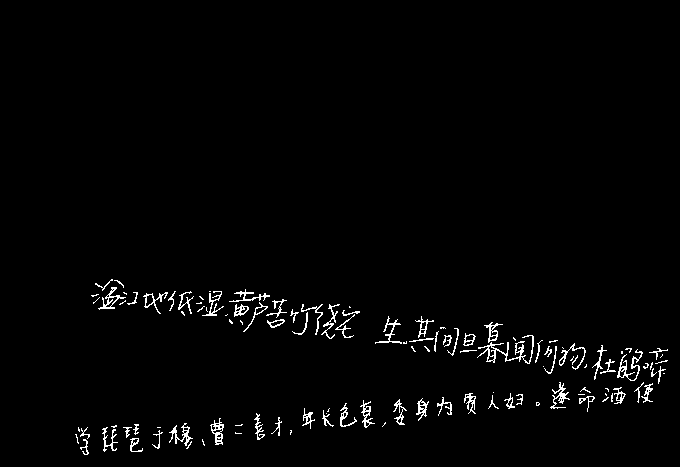 湓江地低湿黄芦苦竹绕宅 生其间旦暮闻何物,杜鹃啼
学琵琶于穆、曹二善才,年长色衰,委身为贾人妇。遂命酒使